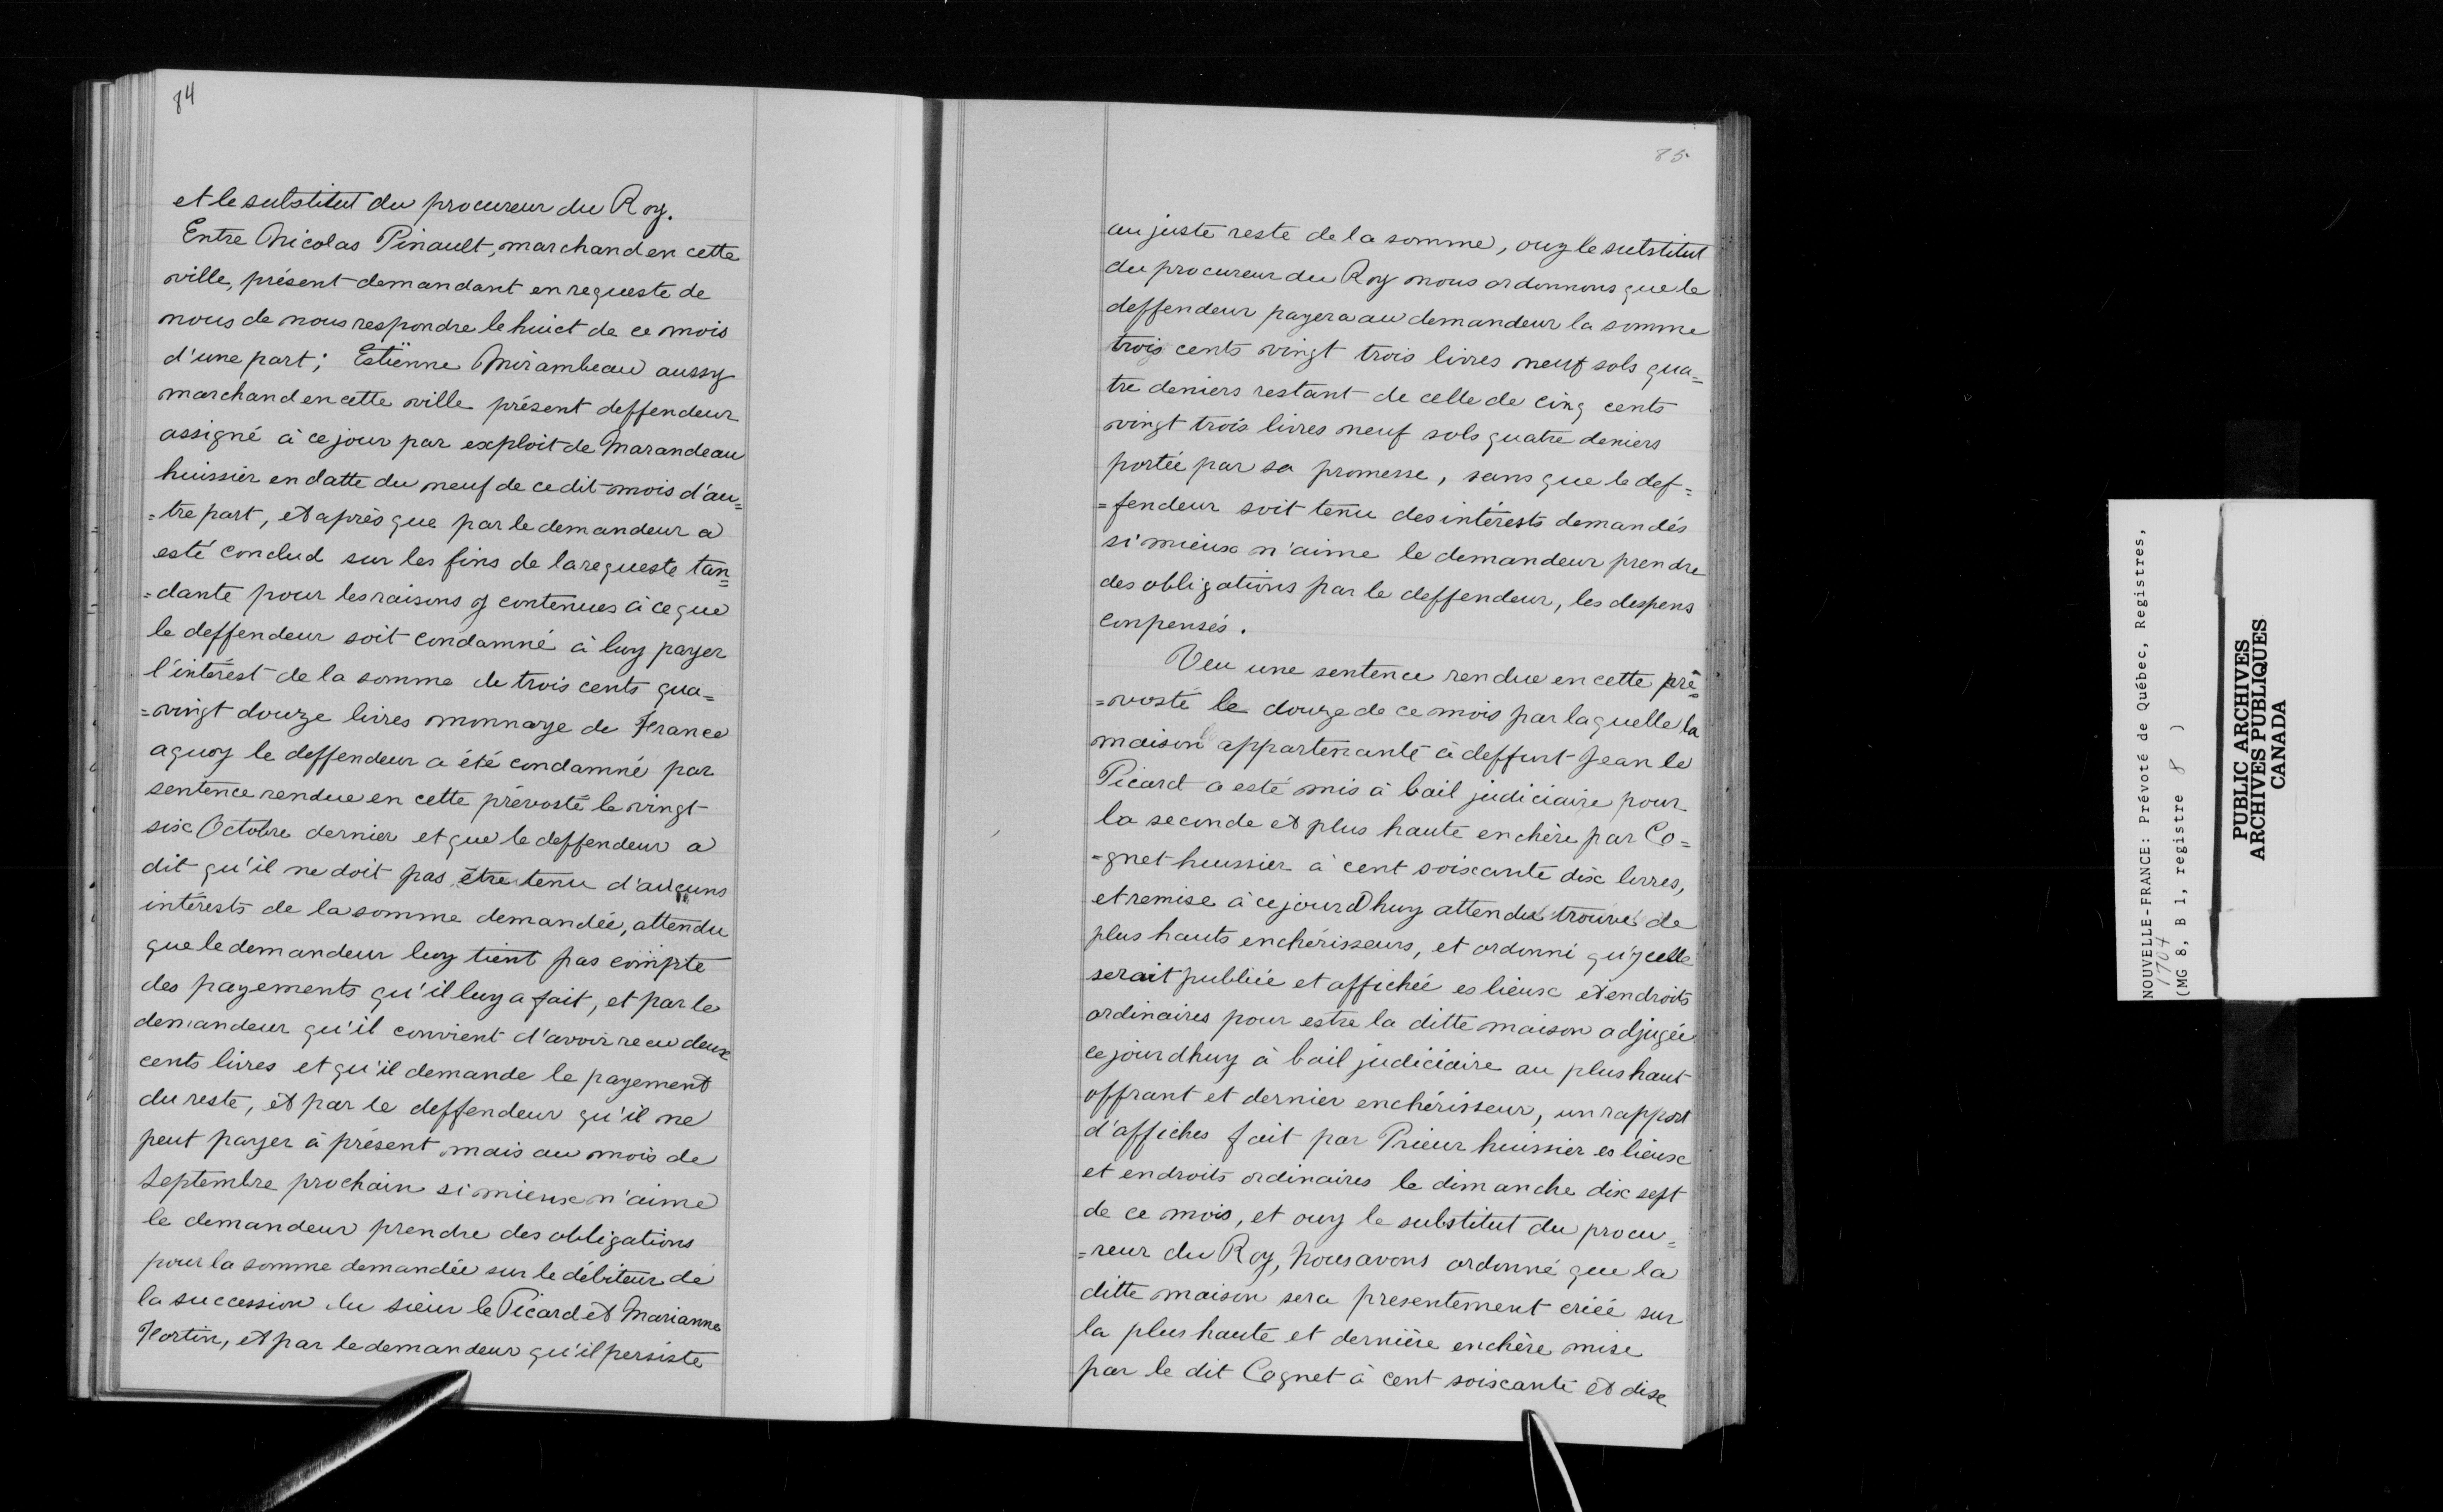 84
et le substitut du procureur du Roy.
Entre Nicolas Pinault, marchand en cette
ville, présent demandant en requeste de
nous de nous respondre le huict de ce mois
d'une part; Estïenne Mirambeau aussy
marchand en cette ville présent deffendeur
assigné à ce jour par exploit de Marandeau
huissier en datte du neuf de ce dit mois d'au=
=tre part, et après que par le demandeur a
esté conclud sur les fins de la requeste tan=
=dante pour les raisons y contenues à ce que
le deffendeur soit condamné à luy payer
l'intérest de la somme de trois cents qua=
=vingt douze livres monnaye de France
aquoy le deffendeur a été condamné par
sentence rendue en cette prévosté le vingt
six Octobre dernier et que le deffendeur a
dit qu'il ne doit pas être tenu d'aucuns
intérests de la somme demandée, attendu
que le demandeur luy tient pas compte
des payements qu'il luy a fait, et par le
demandeur qu'il convient d'avoir recu deux
cents livres et qu'il demande le payement
du reste, et par le deffendeur qu'il ne
peut payer à présent mais au mois de
Septembre prochain si mieux n'aime
le demandeur prendre des obligations
pour la somme demandée sur le débiteur de
la succession du sieur le Picard et Marianne
Fortin, et par le demandeur qu'il persiste
85
au juste reste de la somme, ouy le substitut
du procureur du Roy nous ordonnons que le
deffendeur payera au demandeur la somme
trois cents vingt trois livres neuf sols qua=
tre deniers restant de celle de cinq cents
vingt trois livres neuf sols quatre deniers
portée par sa promesse, sans que le def=
=fendeur soit tenu des intérests demandés
si mieux n'aime le demandeur prendre
des obligations par le deffendeur, les despens
conpensés.
Veu une sentence rendue en cette pré=
=vosté le douze de ce mois par laquelle la
maison appartenante à deffunt Jean le
Picard a esté mis à bail judiciaire pour
la seconde et plus haute enchère par Co=
=gnet huissier à cent soixante dix livres,
et remise à ce jourdhuy attendu trouve de
plus hauts enchérisseurs, et ordonné qu'ycelle
serait publiée et affichée es lieux et endroits
ordinaires pour estre la ditte maison adjugée
ce jourdhuy à bail judiciaire au plus haut
offrant et dernier enchérisseur, un rapport
d'affiches fait par Prieur huissier es lieux
et endroits ordinaires le dimanche dix sept
de ce mois, et ouy le substitut du procu=
=reur du Roy, nous avons ordonné que la
ditte maison sera presentement criée sur
la plus haute et dernière enchère mise
par le dit Cognet à cent soixante et dix
NOUVELLE-FRANCE: Prévoté de Québec, Registres,
1704
(MG 8, B 1, registre 8 )
PUBLIC ARCHIVES
ARCHIVES PUBLIQUES
CANADA